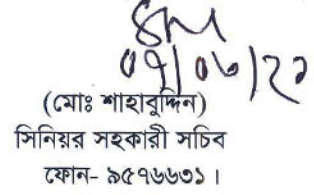 ০৭/০৬/২১
(মোঃ শাহাবুদ্দিন)
সিনিয়র সহকারী সচিব
ফোন- ৯৫৭৬৬৩১।